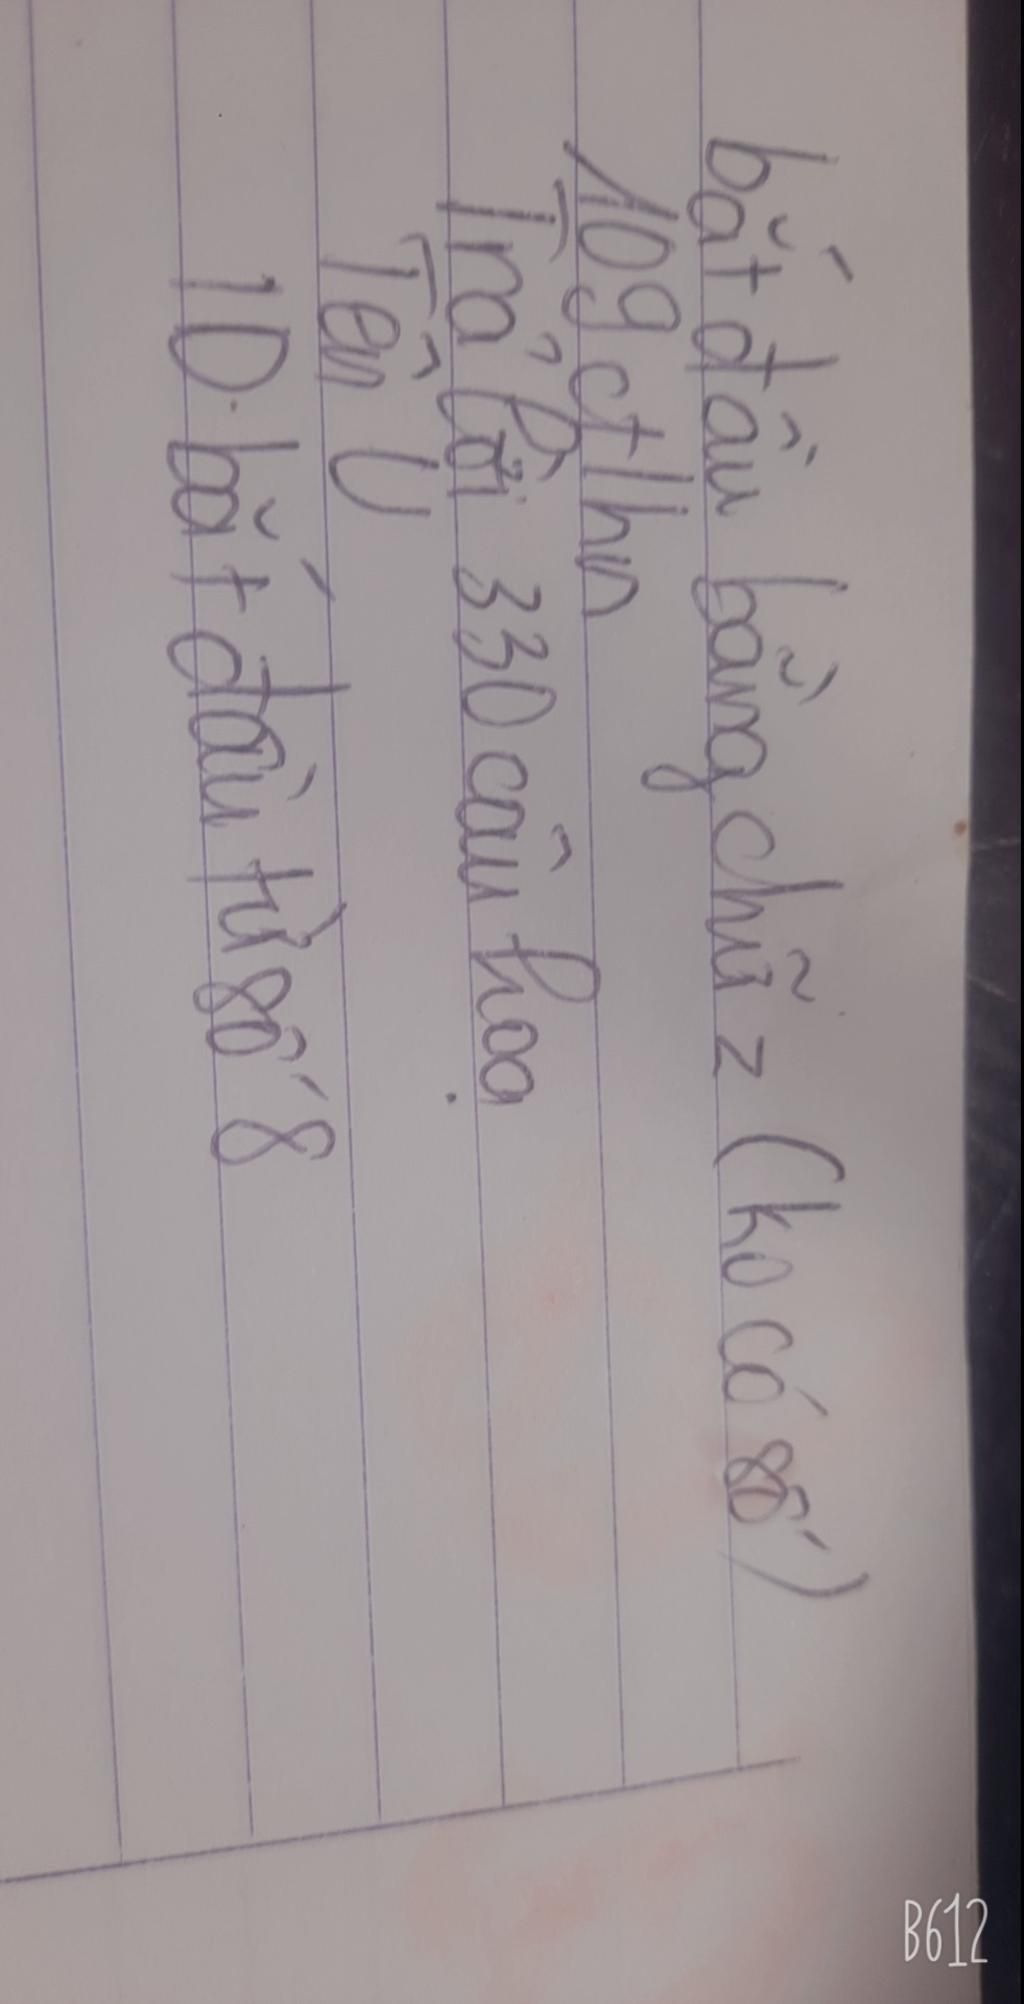 bắt đầu bằng chữ z (ko có số)
109 ctlhn
Trả lời 330 câu hoa
Tên U
1D. bắt đầu từ số 8
B612